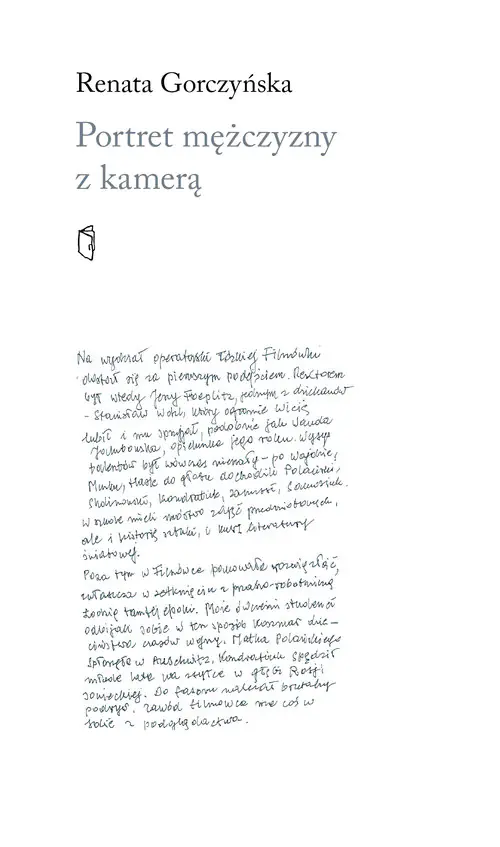 Renata Gorczyńska
Portret mężczyzny
z kamerą
Na wydział operatorski łódzkiej Filmówki
dostał się za pierwszym podejściem. Rektorem
był wtedy Jerzy Toeplitz, jednym z dziekanów
- Stanisław Wohl, który ogromnie Wicię
lubił i mu sprzyjał, podobnie jak Wanda
Jakubowska, opiekunka jego roku. Wysyp
talentów był wówczas niemały - po Wajdzie,
Munku, Hasie do głosu dochodzili Polański,
Skolimowski, Kondratiuk, Zanussi,
W szkole mieli mnóstwo zajęć przedmiotowych,
ale i historię sztuki, i kurs literatury
światowej.
Poza tym w Filmówce panowało rozwiązłość,
zwłaszcza w zetknięciu z prząśno-robotniczą
Łodzią tamtej epoki. Może ówcześni studenci
odbijali sobie w ten sposób koszmar dzie-
ciństwa czasów wojny. Matka Polańskiego
spłonęła w Auschwitz, Kondratiuk spędził
młode lata na zsyłce w głębi Rosji
sowieckiej. Do tańców należał brutalny
podryw. Zawód filmowca ma coś w
sobie z podglądactwa.